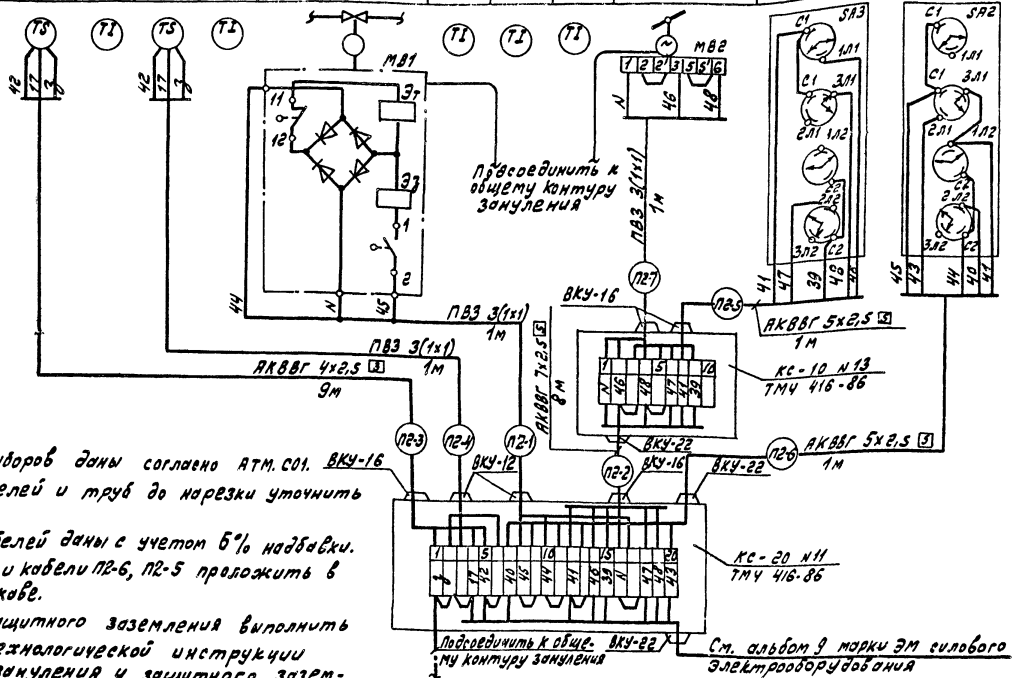 TS
TI
TS
TI
TI
TI
TI
42
17
3
42
17
3
МВ1
11
12
Эт
Эз
1
2
44
N
45
Подсоединить к
общему контуру
зануления
~
МВ2
1 2 2' 3 5 5' 6
N
46
48
ПВЗ 3(1х1)
1м
SA3
С1
1Л1
С1
3Л1
2Л1
1Л2
С2
2Л2
3Л2
С2
41
47
39
48
46
SA2
С1
1Л1
С1
3Л1
2Л1
1Л2
С2
2Л2
3Л2
С2
45
43
44
40
41
ПВЗ 3(1х1)
1м
ПВЗ 3(1х1)
1м
АКВВГ 4х2,5 S
9м
П2-7
ВКУ-16
П2-5
АКВВГ 5х2,5 S
1м
АКВВГ 7х2,5 S
8м
1 5 10
N 46 48 47 41 39
КС-10 N13
ТМ4 416-86
ВКУ-22
П2-3
П2-4
П2-1
П2-2
П2-6
АКВВГ 5х2,5 S
1м
ВКУ-16
ВКУ-12
ВКУ-16
ВКУ-22
иборов даны согласно АТМ.С01.
елей и труб до нарезки уточнить
белей даны с учетом 6% надбавки.
и кабели П2-6, П2-5 проложить в
каве.
ащитного заземления выполнить
ехнологической инструкции
зануления и защитного зазем-
1 5 10 15 20
3 17 42 40 45 44 41 46 39 N 47 48 43
КС-20 N11
ТМ4 416-86
Подсоединить к обще-
му контуру зануления
ВКУ-22
См. альбом 9 марки ЭМ силового
электрооборудования